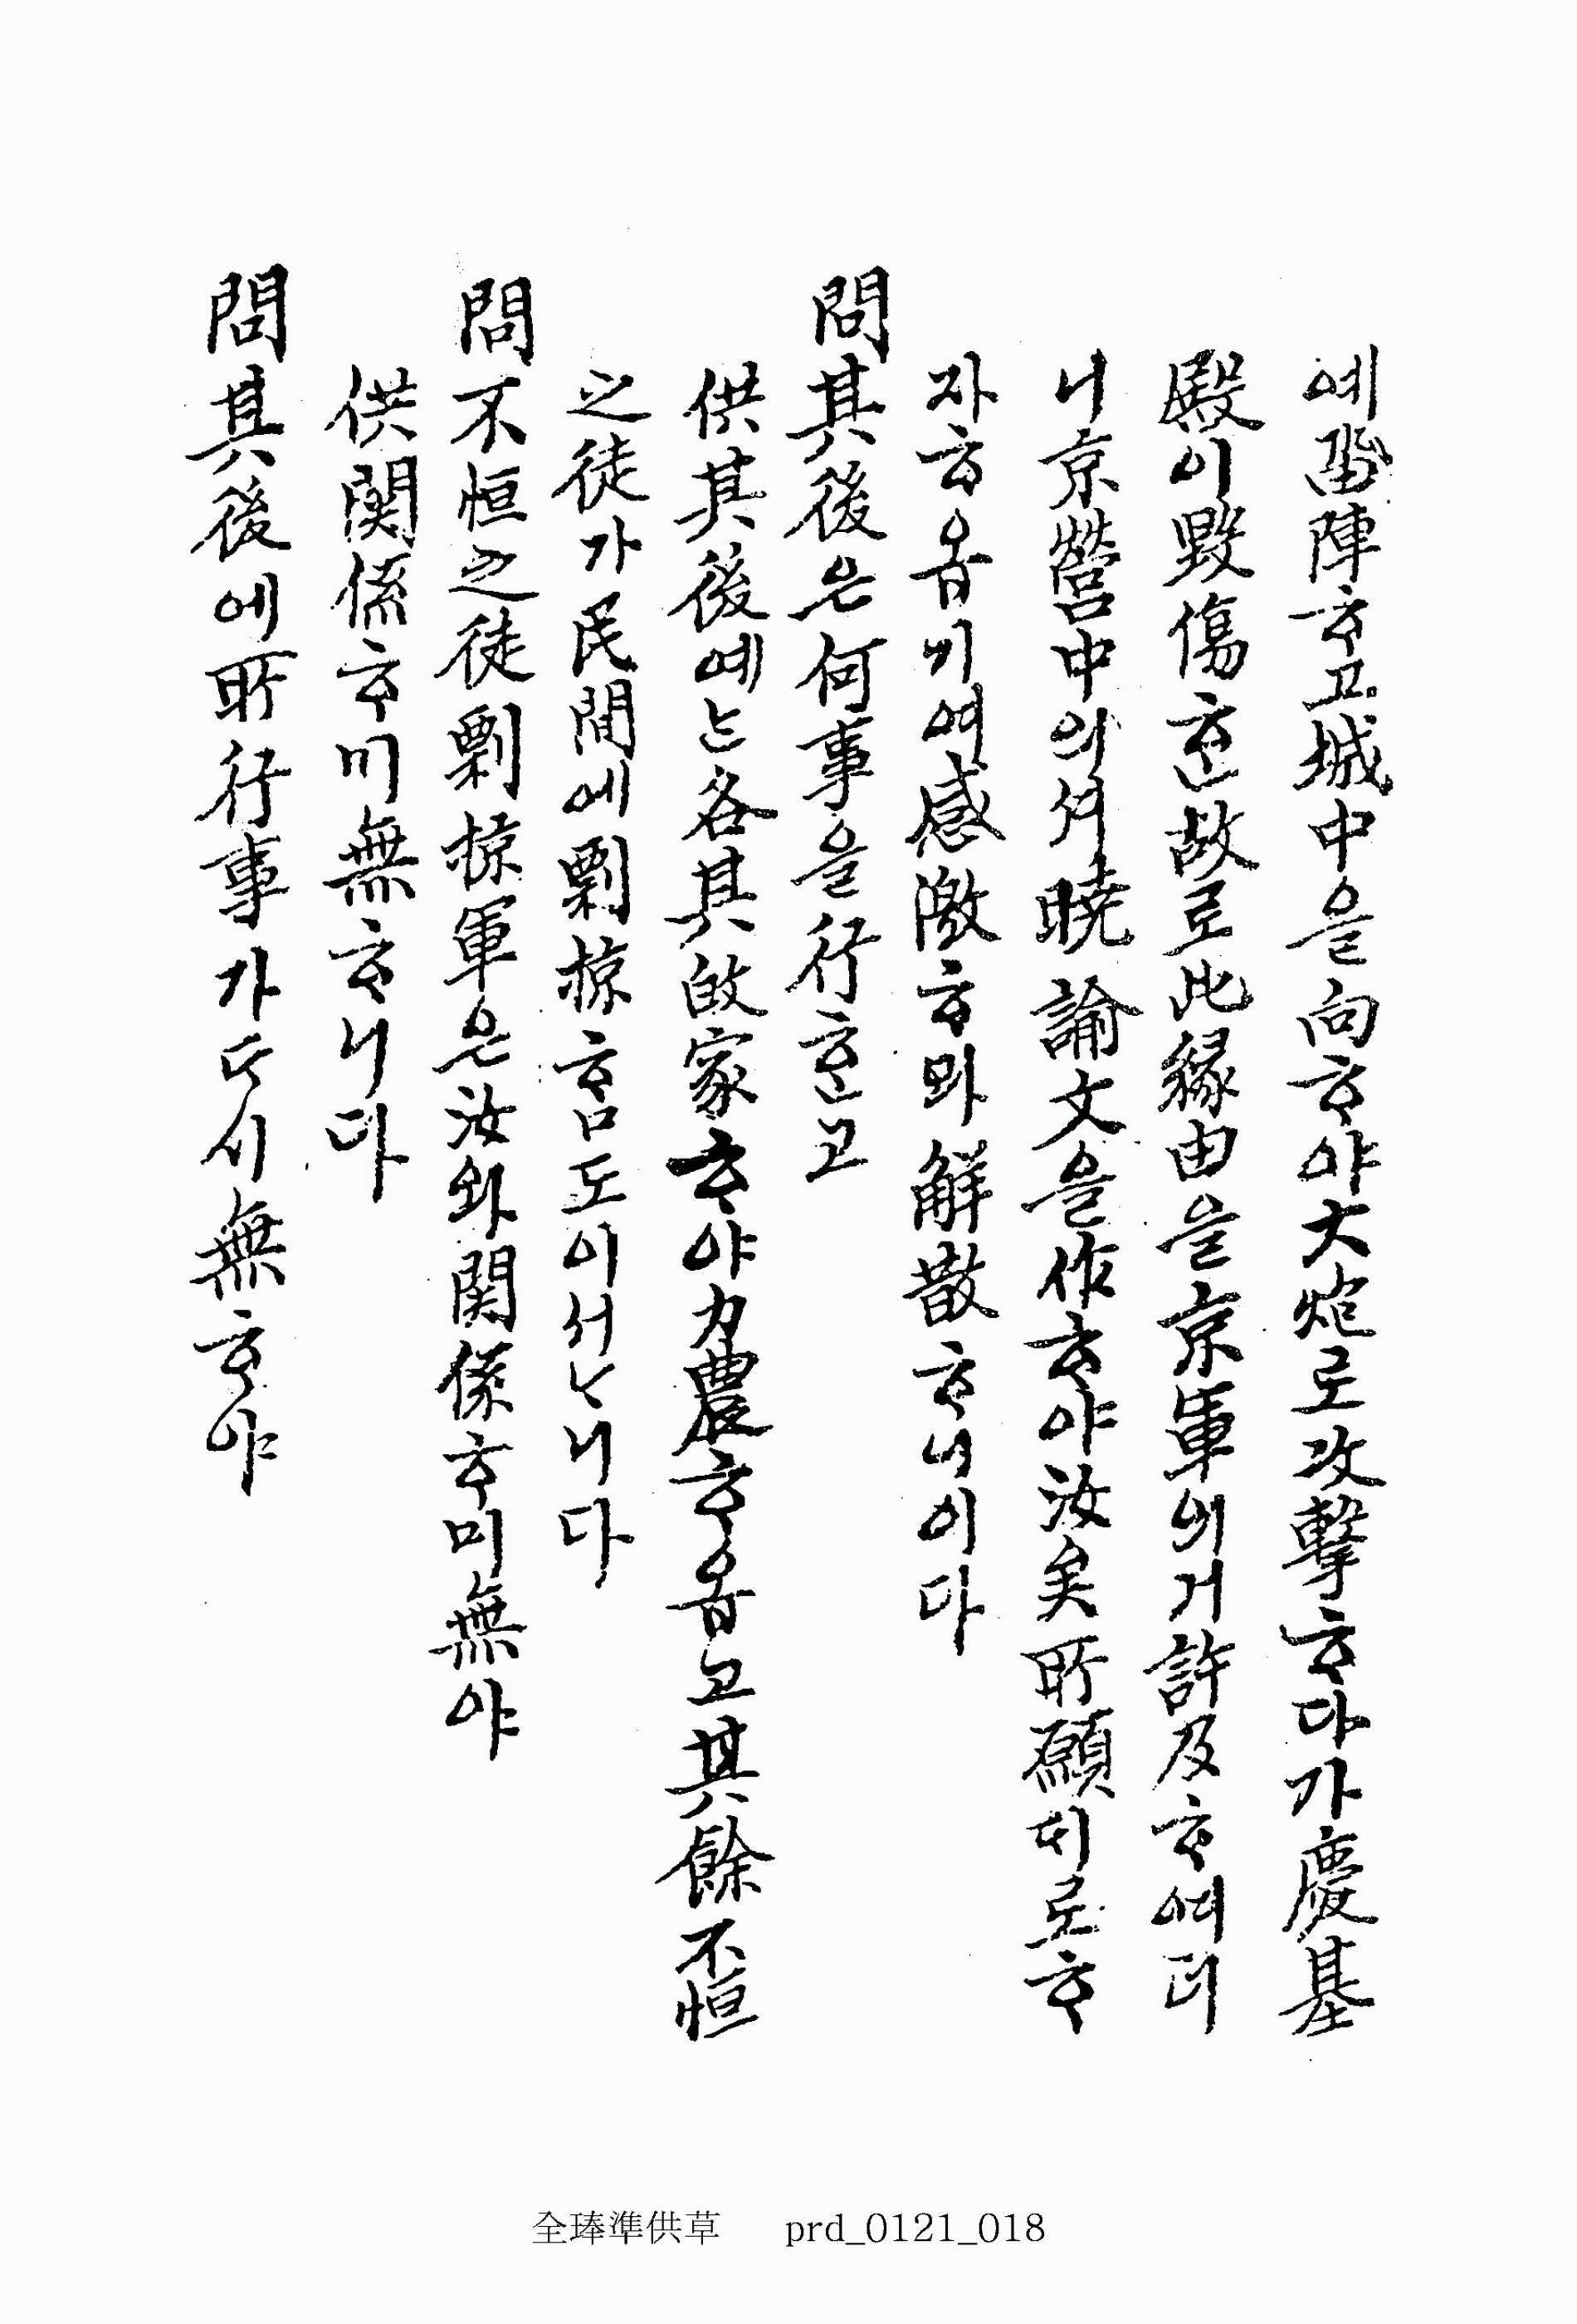 에 留陣ᄒᆞ고 城中을 向ᄒᆞ야 大炮로 攻擊ᄒᆞ다가 慶基
殿이 毁傷ᄒᆞᆫ 故로 此緣由을 京軍의게 許及ᄒᆞ여더
니 京營中의셔 曉諭文을 作ᄒᆞ야 汝矣 所願ᄃᆡ로 ᄒᆞ
자 ᄒᆞ옵기여 感激ᄒᆞ와 解散ᄒᆞ녀이다
問 其後은 何事을 行ᄒᆞᆫ고
供 其後에ᄂᆞᆫ 各其 故家ᄒᆞ야 力農ᄒᆞ옵고 其餘 不恒
之徒가 民間에 剽掠ᄒᆞᆷ도 이서ᄂᆞ니다
問 不恒之徒 剽掠軍은 汝와 関係ᄒᆞ미 無야
供 関係ᄒᆞ미 無ᄒᆞ니다
問 其後에 所行事가 ᄯᅩ시 無ᄒᆞ야
全琫準供草 prd_0121_018